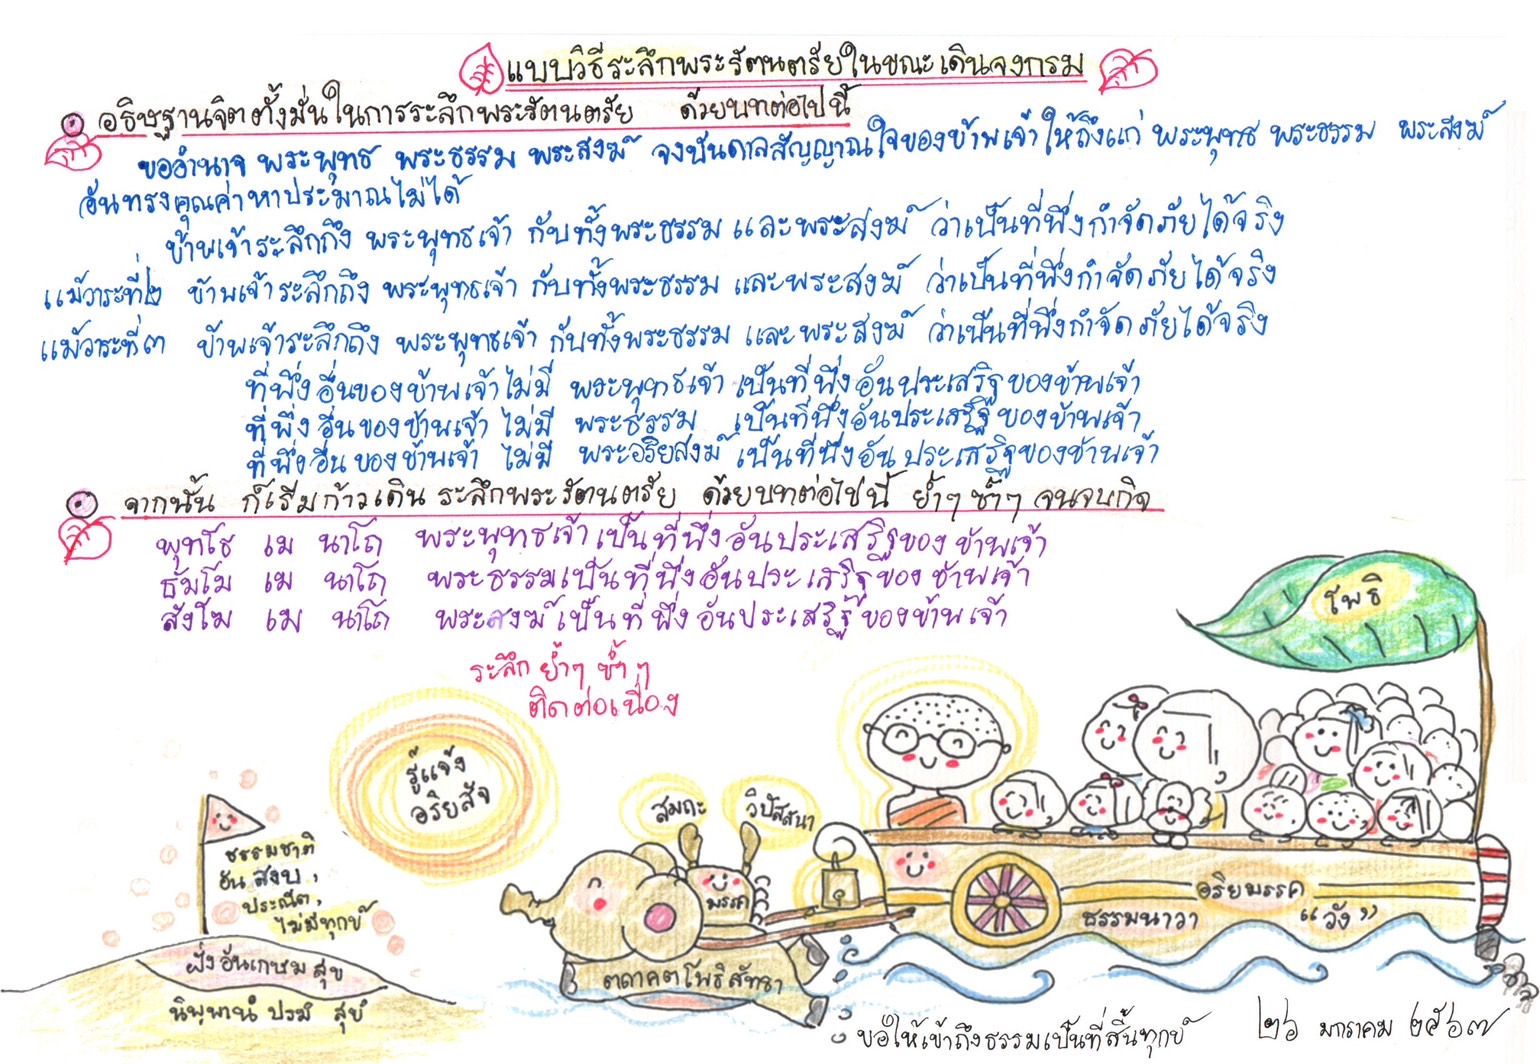 แบบวิธีระลึกพระรัตนตรัยในขณะเดินจงกรม
อธิษฐานจิตตั้งมั่นในการระลึกพระรัตนตรัย ด้วยบทต่อไปนี้
ขออำนาจ พระพุทธ พระธรรม พระสงฆ์ จงบันดาลสัญญาณใจของข้าพเจ้าให้ถึงแก่ พระพุทธ พระธรรม พระสงฆ์
อันทรงคุณค่าหาประมาณไม่ได้
ข้าพเจ้าระลึกถึง พระพุทธเจ้า กับทั้งพระธรรม และพระสงฆ์ ว่าเป็นที่พึ่งกำจัดภัยได้จริง
แม้วาระที่๒ ข้าพเจ้าระลึกถึง พระพุทธเจ้า กับทั้งพระธรรม และพระสงฆ์ ว่าเป็นที่พึ่งกำจัดภัยได้จริง
แม้วาระที่๓ ข้าพเจ้าระลึกถึง พระพุทธเจ้า กับทั้งพระธรรม และพระสงฆ์ ว่าเป็นที่พึ่งกำจัดภัยได้จริง
ที่พึ่งอื่นของข้าพเจ้าไม่มี พระพุทธเจ้า เป็นที่พึ่งอันประเสริฐของข้าพเจ้า
ที่พึ่งอื่นของข้าพเจ้า ไม่มี พระธรรม เป็นที่พึ่งอันประเสริฐของข้าพเจ้า
ที่พึ่งอื่นของข้าพเจ้า ไม่มี พระอริยสงฆ์ เป็นที่พึ่งอันประเสริฐของข้าพเจ้า
จากนั้น ก็เริ่มก้าวเดิน ระลึกพระรัตนตรัย ด้วยบทต่อไปนี้ ย้ำๆ ซ้ำๆ จนจบกิจ
พุทโธ เม นาโถ พระพุทธเจ้าเป็นที่พึ่งอันประเสริฐของข้าพเจ้า
ธัมโม เม นาโถ พระธรรมเป็นที่พึ่งอันประเสริฐของข้าพเจ้า
สังโฆ เม นาโถ พระสงฆ์เป็นที่พึ่งอันประเสริฐของข้าพเจ้า
ระลึก ย้ำๆ ซ้ำๆ
ติดต่อเนื่อง
โพธิ
รู้แจ้ง
อริยสัจ
สมถะ
วิปัสสนา
ธรรมชาติ
อันสงบ,
ประณีต,
ไม่มีทุกข์
มรรค
อริยมรรค
ธรรมนาวา "วัง"
ฝั่งอันเกษมสุข
ตถาคตโพธิสัทธา
นิพฺพานํ ปรมํ สุขํ
ขอให้เข้าถึงธรรมเป็นที่สิ้นทุกข์
๒๖ มกราคม ๒๕๖๗